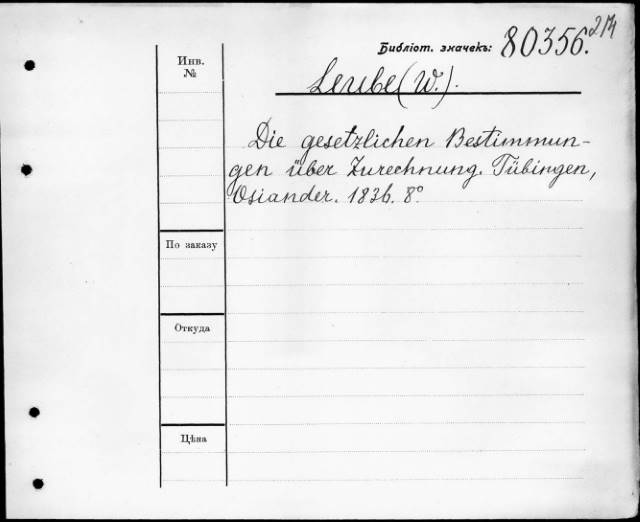 Библіот. значекъ: 80356. 214
Инв.
№
Leube (W.).
Die gesetzlichen Bestimmun-
gen über Zurechnung. Tübingen,
Osiander. 1836. 8°
По заказу
Откуда
Цѣна